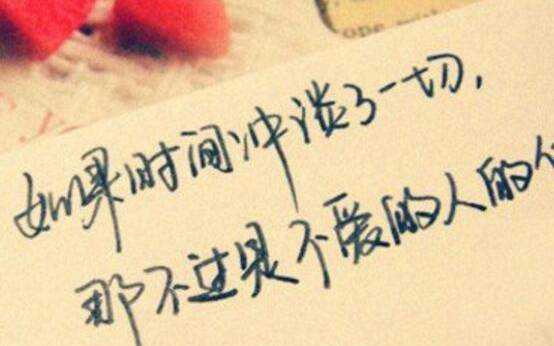 如果时间冲淡了一切，
那不过是不爱的人的